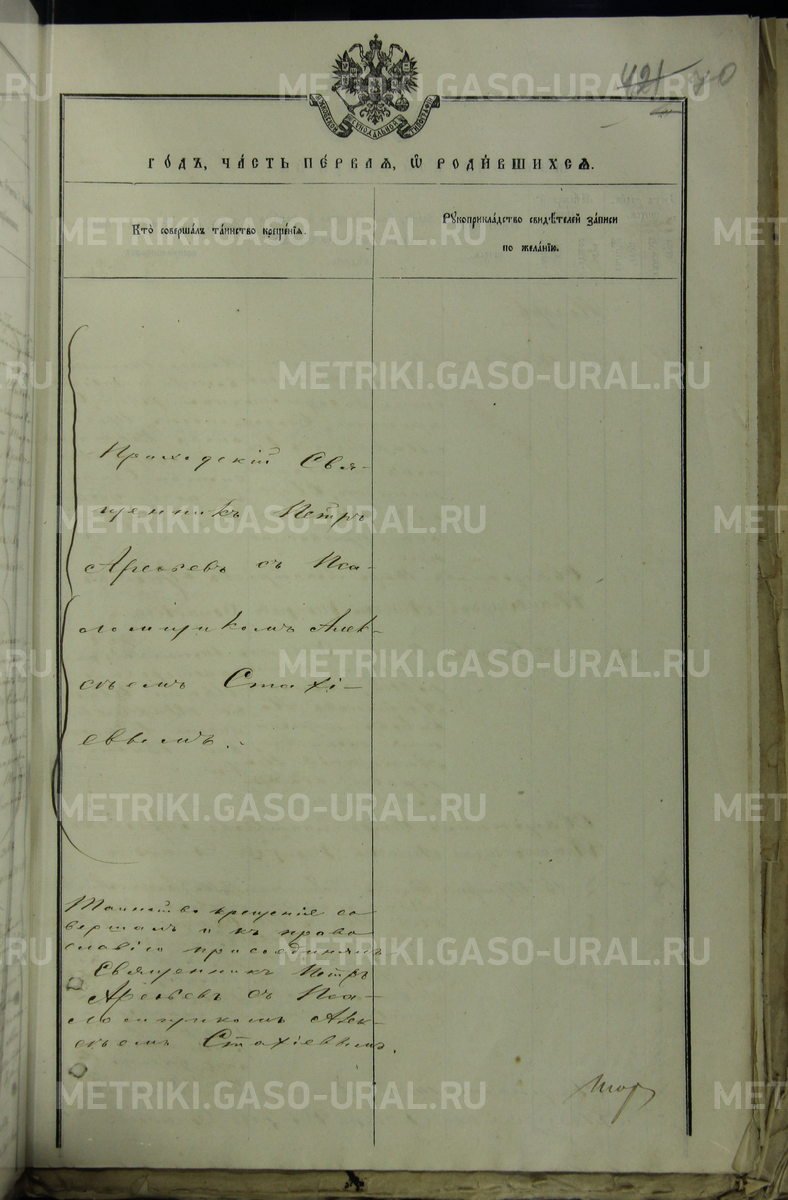 421
МОСКОВСКОЙ СѴНОДАЛЬНОЙ ТИПОГРАФІИ
ГО́ДЪ, ЧА́СТЬ ПЕ́РВАѦ, Ѡ҆ РОДИ́ВШИХСѦ.
Кто̀ соверша́лъ та́инство креще́нїѧ.
Рꙋкоприкла́дство свидѣ́телей за́писи
по жела́нїю.
Приходскій Свя-
щенникъ Петръ
Арефьевъ съ Пса-
ломщикомъ Алек-
сѣемъ Стахі-
евымъ.
Таинство крещенія со
вершалъ и къ право
славію присоединялъ
Священникъ Петръ
Арефьевъ съ Пса-
ломщикомъ Алек-
сѣемъ Стахіевымъ.
METRIKI.GASO-URAL.RU